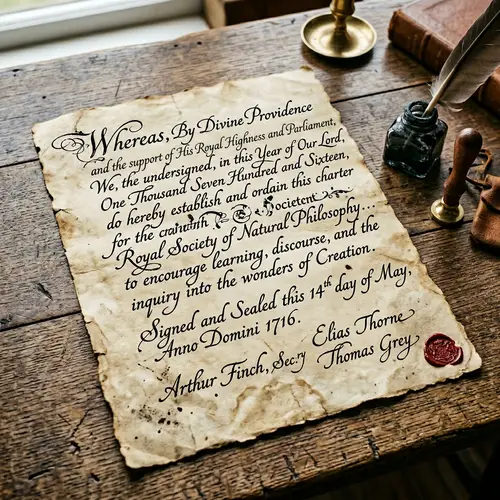 Whereas, By Divine Providence
and the support of His Royal Highness and Parliament,
We, the undersigned, in this Year of Our Lord,
One Thousand Seven Hundred and Sixteen,
do hereby establish and ordain this charter
for the
Royal Society of Natural Philosophy...
to encourage learning, discourse, and the
inquiry into the wonders of Creation.
Signed and Sealed this 14th day of May,
Anno Domini 1716.
Arthur Finch, Sec.ry
Elias Thorne
Thomas Grey